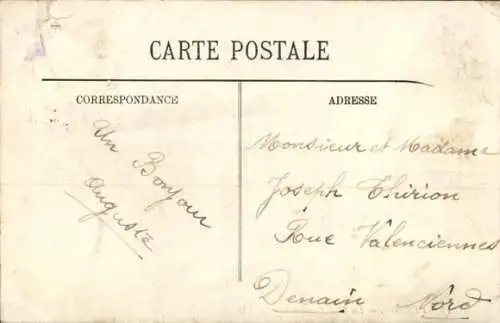 CARTE POSTALE
CORRESPONDANCE
Un Bonjour
Auguste
ADRESSE
Monsieur et Madame
Joseph Thirion
Rue Valenciennes
Denain Nord